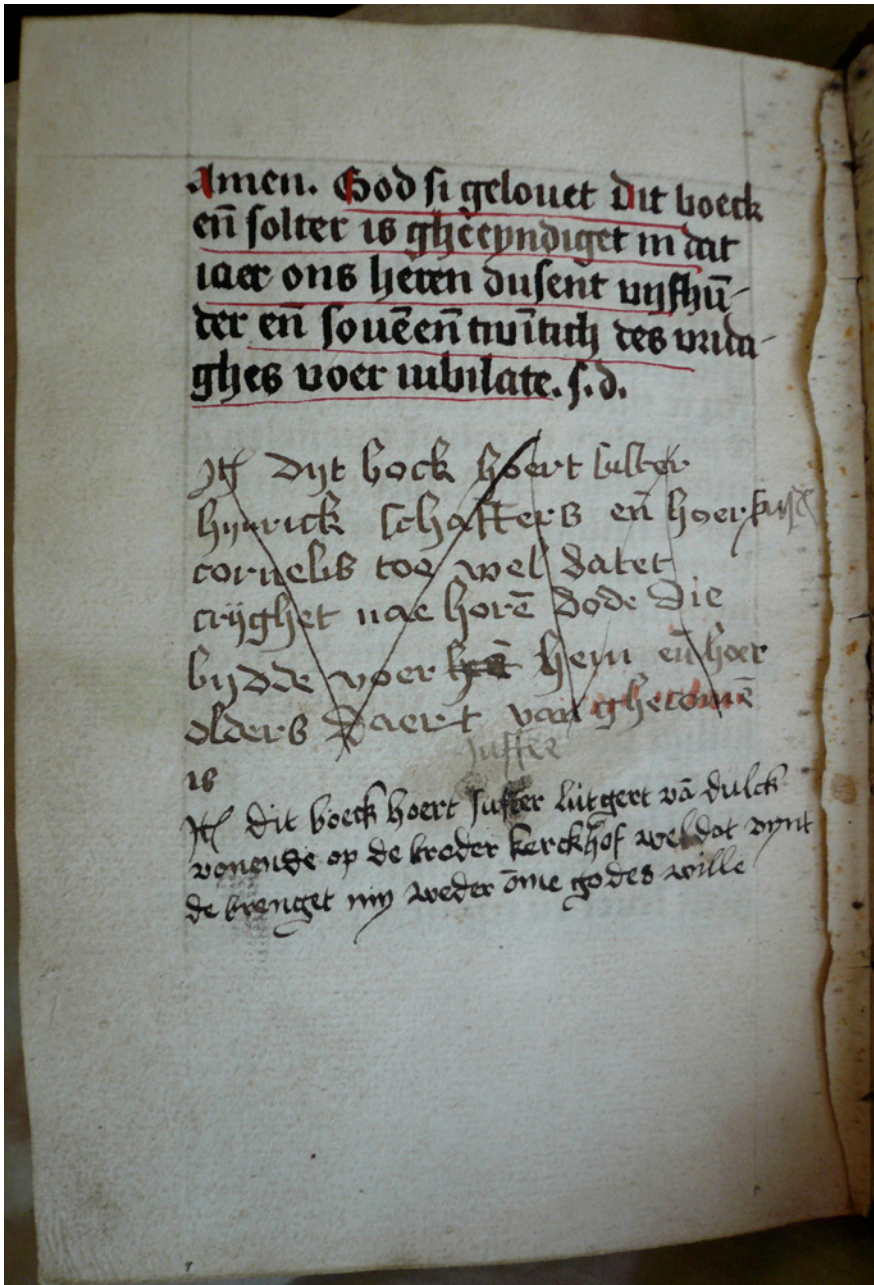 Amen. God si gelouet Dit boeck
en̄ solter is ghēeyndiget in dat
iaer ons heren dusent vijfhū-
der en̄ souēen̄ twītich des vrida-
ghes voer iubilate. s. d.
Itē dijt bock hoert suster
hijnrick schaffers en̄ hoer
cornelis toe wel datet
crijghet nae horē dode die
bijdde voer hem en̄ hoer
olders daert van ghecomē
is
suster
Itē dit boeck hoert suster lutgert vā dulck
vonende op de broder kerckhof wel dat vynt
de brenget my weder ōme godes wille